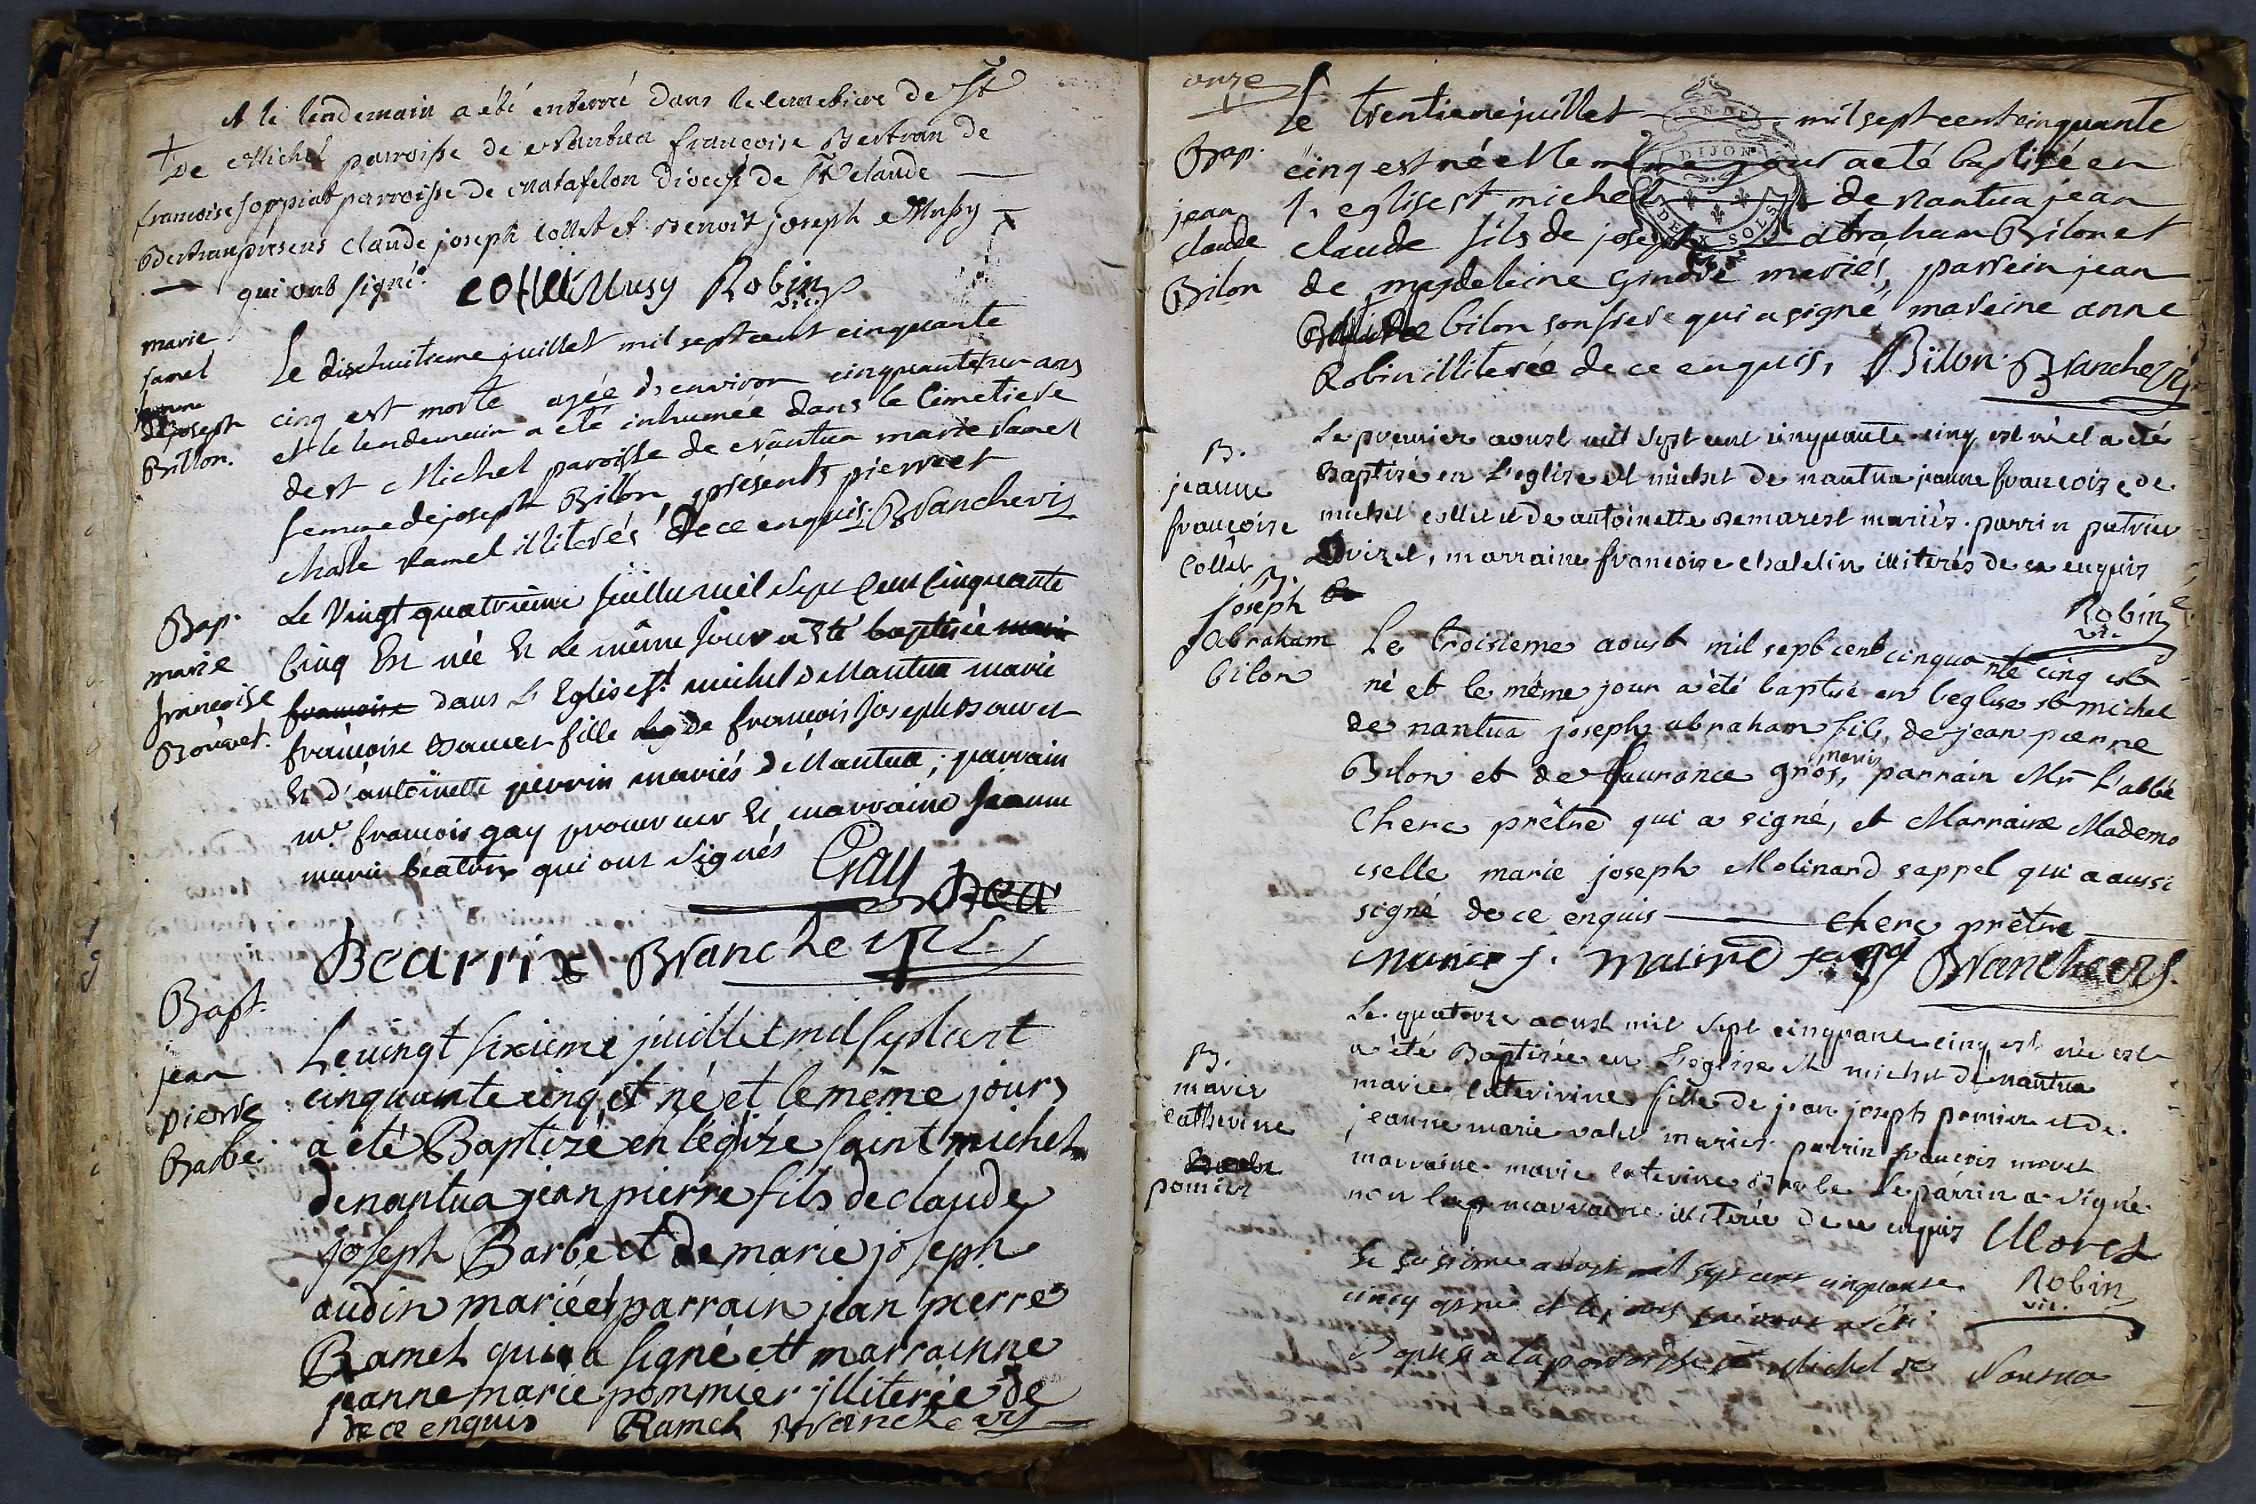 et le lendemain a été enterré dans le cemetiere de St
De Michel parroisse de Nantua françoise Bertran de
francoise soppiat parroisse de matafelon Diocese de St Claude
Bertran presens Claude joseph Collet et Benoit joseph Mussy
qui ont signé. Collet Musy Robin vic.
marie
ramel
femme
de joseph
Billon.
Le dixhuitieme juillet mil sept cent cinquante
cinq est morte agée d'environ cinquante sur ans
et le lendemain a eté inhumée dans le Cimetiere
de st Michel paroisse de Nantua marie Ramel
femme de joseph Billon, présents pierre et
charle Ramel illiterés de ce enquis. Branche vis
Bap.
marie
françoise
Bouvet.
Le Vingt quatrieme Juillet mil Sept Cent Cinquante
Cinq Est née Et Le même Jour a Eté baptisée marie
francoise dans L'Eglise St michel de Nantua marie
françoise Bouvet fille de françois Joseph Bouvet
Et d'antoinette perrin mariés de Nantua, parrain
me françois gay procureur Et marraine Jeanne
marie béatrix qui ont signés Gay
Bea
Beatrix Branche vic
Bapt.
jean
pierre
Barbe
Le vingt sixieme juillet mil sept cent
cinquante cinq est né et le même jour
a été Baptizé en l'églize saint michel
de nantua jean pierre fils de claude
joseph Barbe et de marie joseph
audin mariées parrain jean pierre
Ramel qui a signé et marrainne
jeanne marie pommier illiterée de
de ce enquis Ramel Branche vis
onze
Bap.
jean
claude
Bilon
Le trentieme juillet mil sept cent cinquante
cinq est né et le même jour a eté baptisé en
l'eglise st michel de nantua jean
claude fils de joseph abraham Bilon et
de magdeleine ginod mariés, parrein jean
claude bilon son frere qui a signé mareine anne
Robin illiterée de ce enquis, Bilon Branche vis
DIJON
DEUX SOLS
B.
jeanne
françoise
Collet
Le premier aoust mil sept cent cinquante cinq est né et a été
Baptisé en l'eglise st michel de nantua jeanne françoise de
michel collet et de antoinette Demarest mariés. parrin patrice
marraine francoise chatelin illiterés de ce enquis
Robin
vic.
B.
joseph
abraham
bilon
Le troisieme aoust mil sept cent cinquante cinq est
né et le même jour a été baptisé en l'eglise st michel
de nantua joseph abraham fils de jean pierre
Bilon et de Laurance gros, mariés parrain Mr L'abbé
Cherc prêtre qui a signé, et Marraine Mademo
iselle marie joseph Molinard sappel qui a aussi
signé de ce enquis cherc prêtre
marie j. Branche vis.
B.
marie
catherine
pomier
Le quatorze aoust mil sept cinquante cinq est née est
a été Baptisée en l'eglise st michel de nantua
marie caterinine fille de jean joseph pomier et de
jeanne marie valet mariés parrin françois moret
marraine marie caterine Barbe Le parrin a signé
non la marraine illiterée de ce enquis Moret
Robin
vic.
Le sixieme aoust mil sept cent cinquante
cinq est né et le jour suivant a été
Baptisé a la parroisse St Michel de Nantua